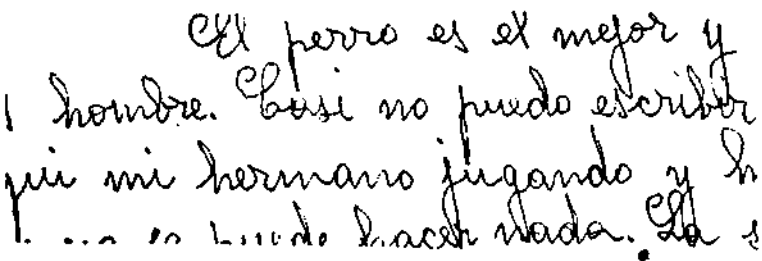 El perro es el mejor y
hombre. Casi no puedo escribir
mi hermano jugando y h
se puede hacer nada. La s